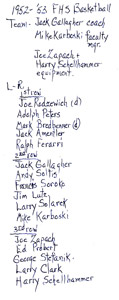 1952-'53 FHS Basketball
Team - Jack Gallagher coach
Mike Karboski faculty
mgr.
Joe Zapach +
Harry Schellhammer
equipment.
L-R
1st row
Joe Radzewich (d)
Adolph Peters
Mark Bradbenner (d)
Jack Ameitler
Ralph Ferarri
2nd row
Jack Gallagher
Andy Soltis
Francis Soroka
Jim Lutz
Larry Solarek
Mike Karboski
3rd row
Joe Zapach
Ed Probert
George Stefanik
Larry Clark
Harry Schellhammer